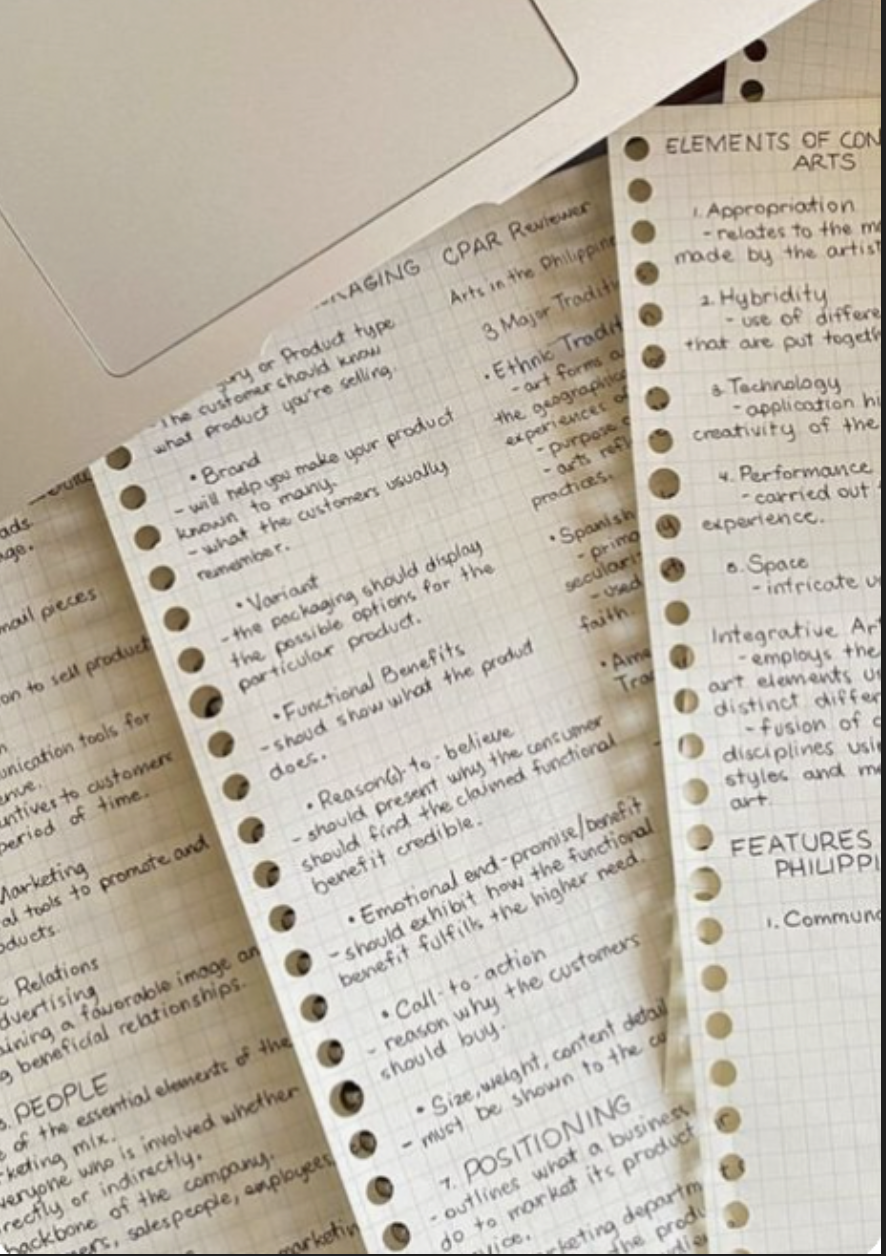 ads.
age.
mail pieces
on to sell product
unication tools for
ntives to customers
period of time.
Marketing
al tools to promote and
oducts.
c Relations
dvertising
aining a favorable image an
g beneficial relationships.
PEOPLE
e of the essential elements of the
keting mix.
veryone who is involved whether
rectly or indirectly.
backbone of the company.
ers, salespeople, employees,
marketin
AGING
ory or Product type
- The customer should know
what product you're selling.
• Brand
- will help you make your product
known to many.
- what the customers usually
remember.
• Variant
- the packaging should display
the possible options for the
particular product.
• Functional Benefits
- shoud show what the product
does.
• Reason(s)-to-believe
- should present why the consumer
should find the claimed functional
benefit credible.
• Emotional end-promise/benefit
- should exhibit how the functional
benefit fulfills the higher need.
• Call-to-action
- reason why the customers
should buy.
• Size, weight, content detail
- must be shown to the cu
7. POSITIONING
- outlines what a business
do to market its product
vice.
keting departm
the produ
CPAR Reviewer
Arts in the Philippine
3 Major Traditi
• Ethnic Tradit
- art forms a
the geographic
experiences of
- purpose o
- arts refl
practices.
• Spanish
- prima
seculari
- used
faith.
• Ame
Trad
ELEMENTS OF CON
ARTS
1. Appropriation
- relates to the m
made by the artist
2. Hybridity
- use of differe
that are put togeth
3. Technology
- application hi
creativity of the
4. Performance
- carried out
experience.
5. Space
- intricate u
Integrative Art
- employs the
art elements us
distinct differ
- fusion of
disciplines usin
styles and me
art.
FEATURES
PHILIPPI
1. Communa